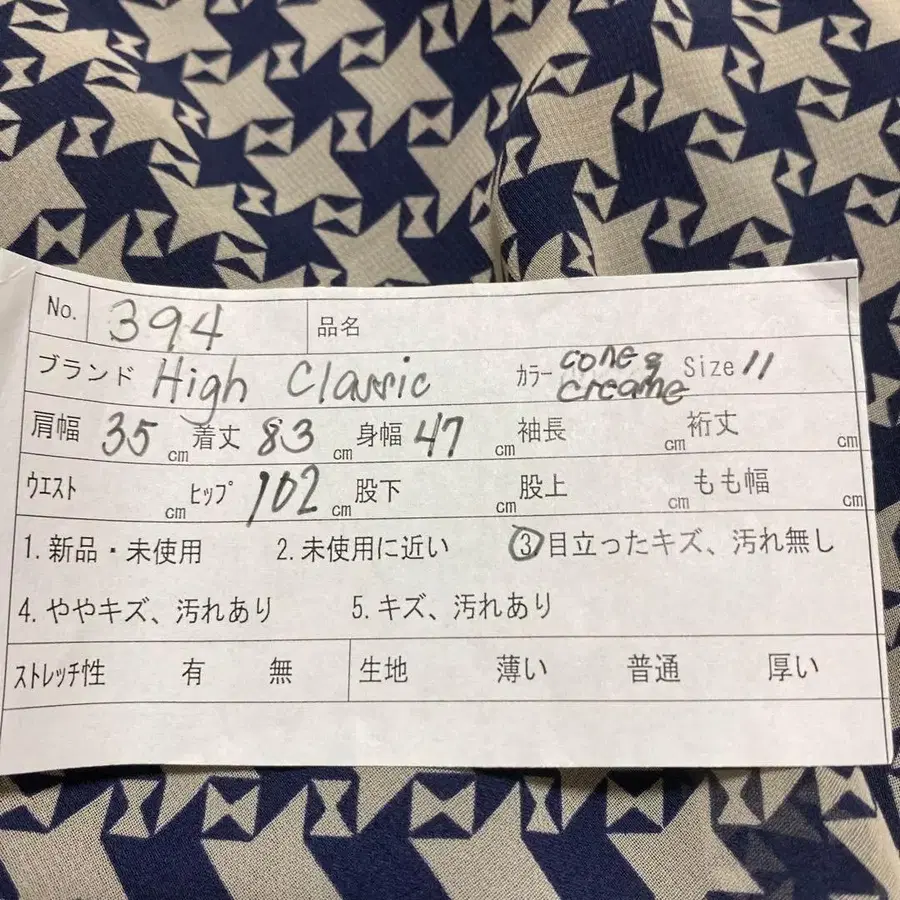 No. 394 品名
ブランド High Classic カラー cone & creame Size 11
肩幅 35 cm 着丈 83 cm 身幅 47 cm 袖長 cm 裄丈 cm
ウエスト cm ヒップ 102 cm 股下 cm 股上 cm もも幅 cm
1.新品・未使用 2.未使用に近い ③目立ったキズ、汚れ無し
4.ややキズ、汚れあり 5.キズ、汚れあり
ストレッチ性 有 無 生地 薄い 普通 厚い